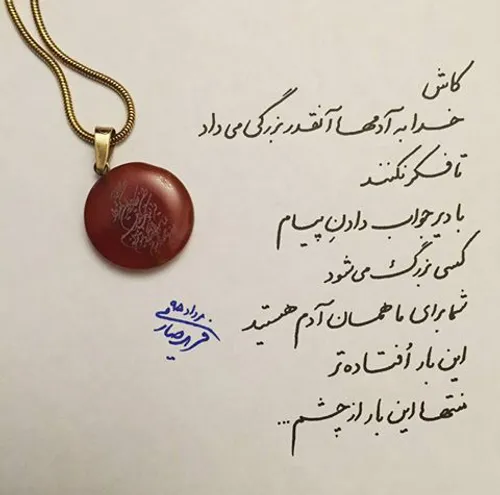 کاش
خدا به آدمها آنقدر بزرگی می داد
تا فکر نکنند
با دیر جواب دادنِ پیام
کسی بزرگ می شود
شما برای ما همان آدم هستید
این بار اُفتاده تر
منتها این بار از چشم...